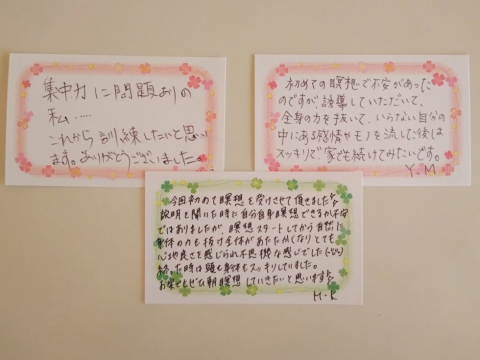 集中力に問題ありの
私……
これから訓練したいと思い
ます。ありがとうございました。
初めての瞑想で不安があった
のですが、誘導していただいて、
全身の力を抜いて、いらない自分の
中にある感情やモノを流した後は
スッキリで家でも続けてみたいです。
Y.M
今回初めて瞑想を受けさせて頂きました
説明を聞いた時に自分自身瞑想できるか不安
ではありましたが、瞑想スタートしてから自然に
身体の力も抜け全体があたたかくなりとても
心地良さを感じられ不思議な感じでした
終った時は頭も身体もスッキリしていました。
お家でもぜひ朝瞑想していきたいと思います
M.K